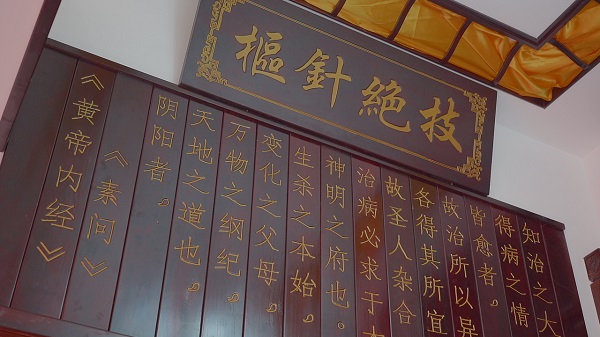 樞針絶技
《黄帝内经》
《素问》
阴阳者，
天地之道也，
万物之纲纪，
变化之父母，
生杀之本始，
神明之府也。
治病必求于
故圣人杂合
各得其所宜
故治所以异
皆愈者，
得病之情
知治之大